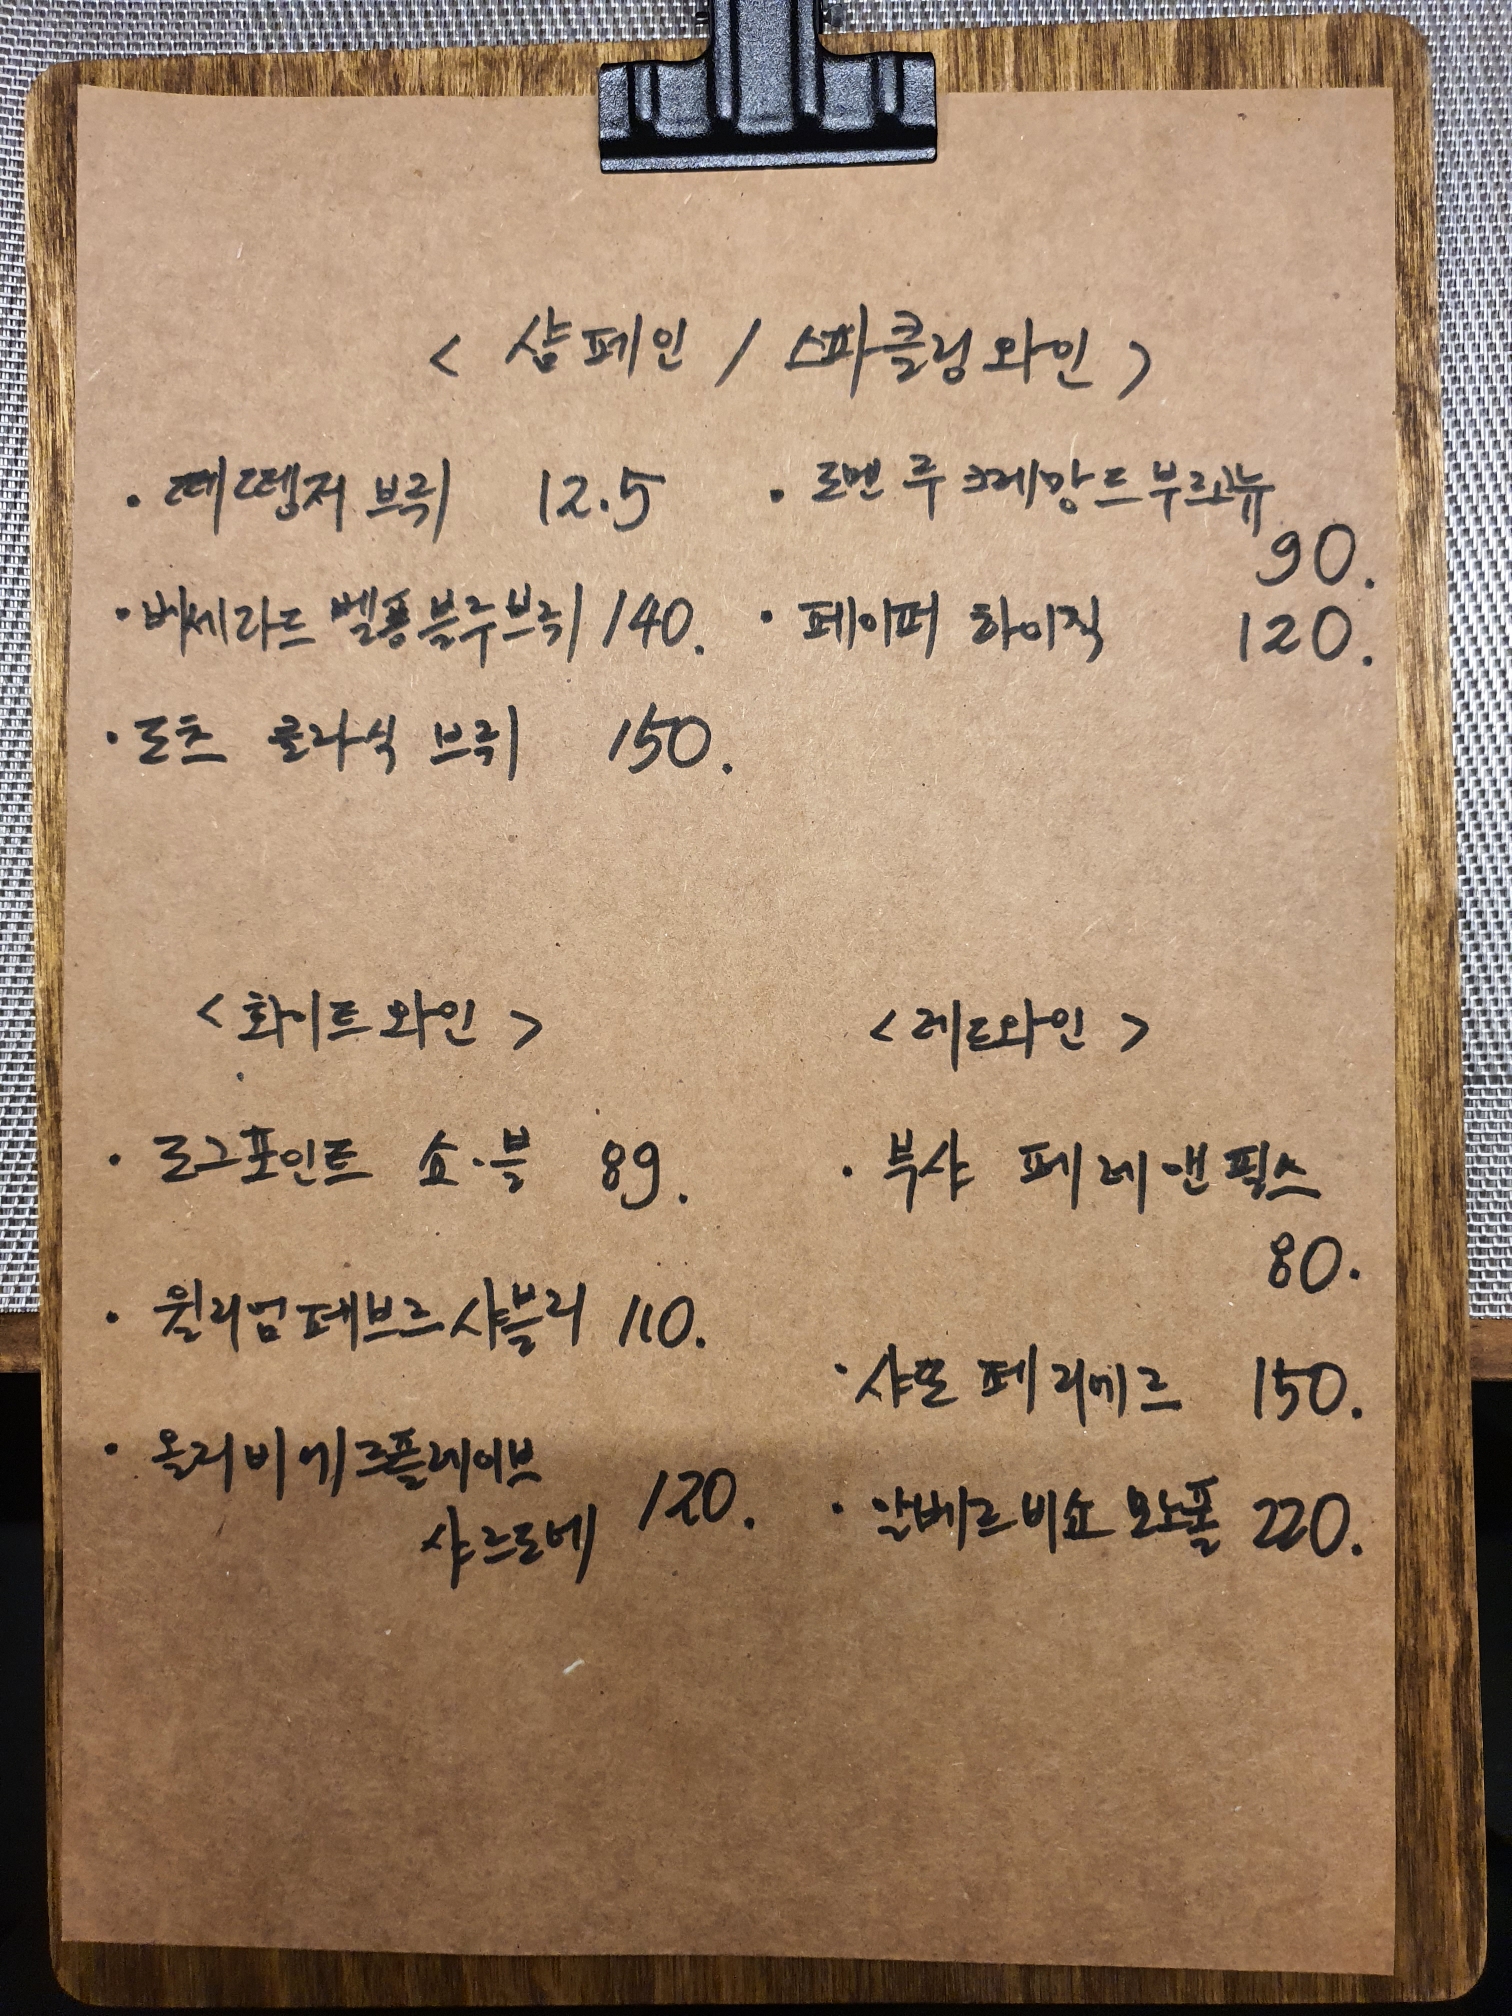 < 샴페인 / 스파클링와인 >
· 떼땡져 브뤼 12.5
· 베세라드 벨퐁 블루브뤼 140.
· 도츠 클라식 브뤼 150.
· 로멘 루 크레망드부르고뉴
90.
· 페이퍼 하이직 120.
< 화이트 와인 >
· 로그포인트 쇼·블 89.
· 윌리엄페브르 샤블리 110.
· 올리비에르플레이브
샤르도네 120.
< 레드와인 >
· 부샤 페레앤픽스
80.
· 샤또 페리에르 150.
· 알베르비쇼 모노폴 220.